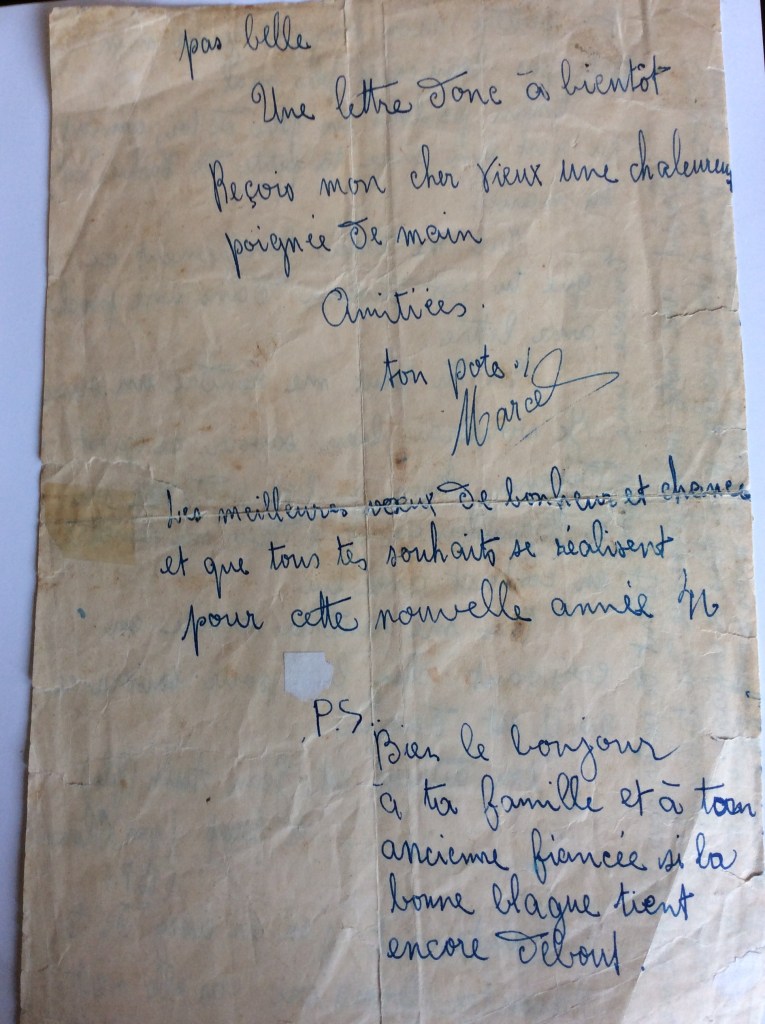 pas belle
Une lettre donc à bientôt
Reçois mon cher vieux une chaleureuse
poignée de main
Amitiées.
ton pote !
Marcel
Les meilleures voeux de bonheur et chance
et que tous tes souhaits se réalisent
pour cette nouvelle année
P.S.
Bien le bonjour
à ta famille et à ton
ancienne fiancée si la
bonne blague tient
encore debout.